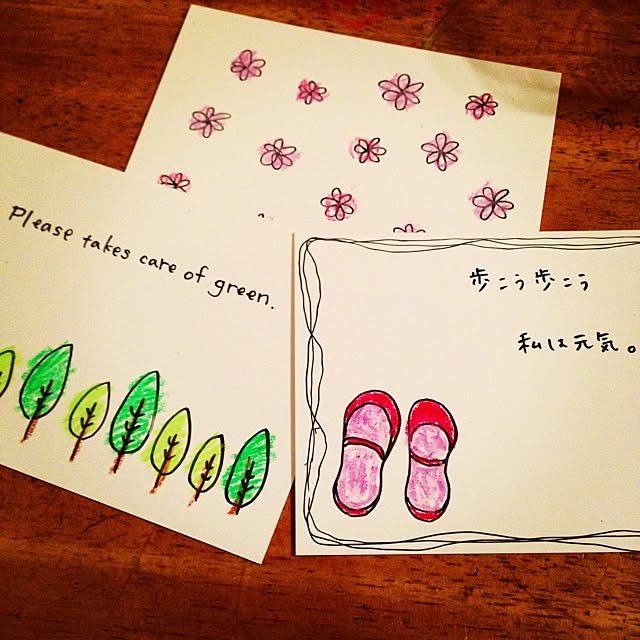 Please takes care of green.
歩こう歩こう
私は元気。